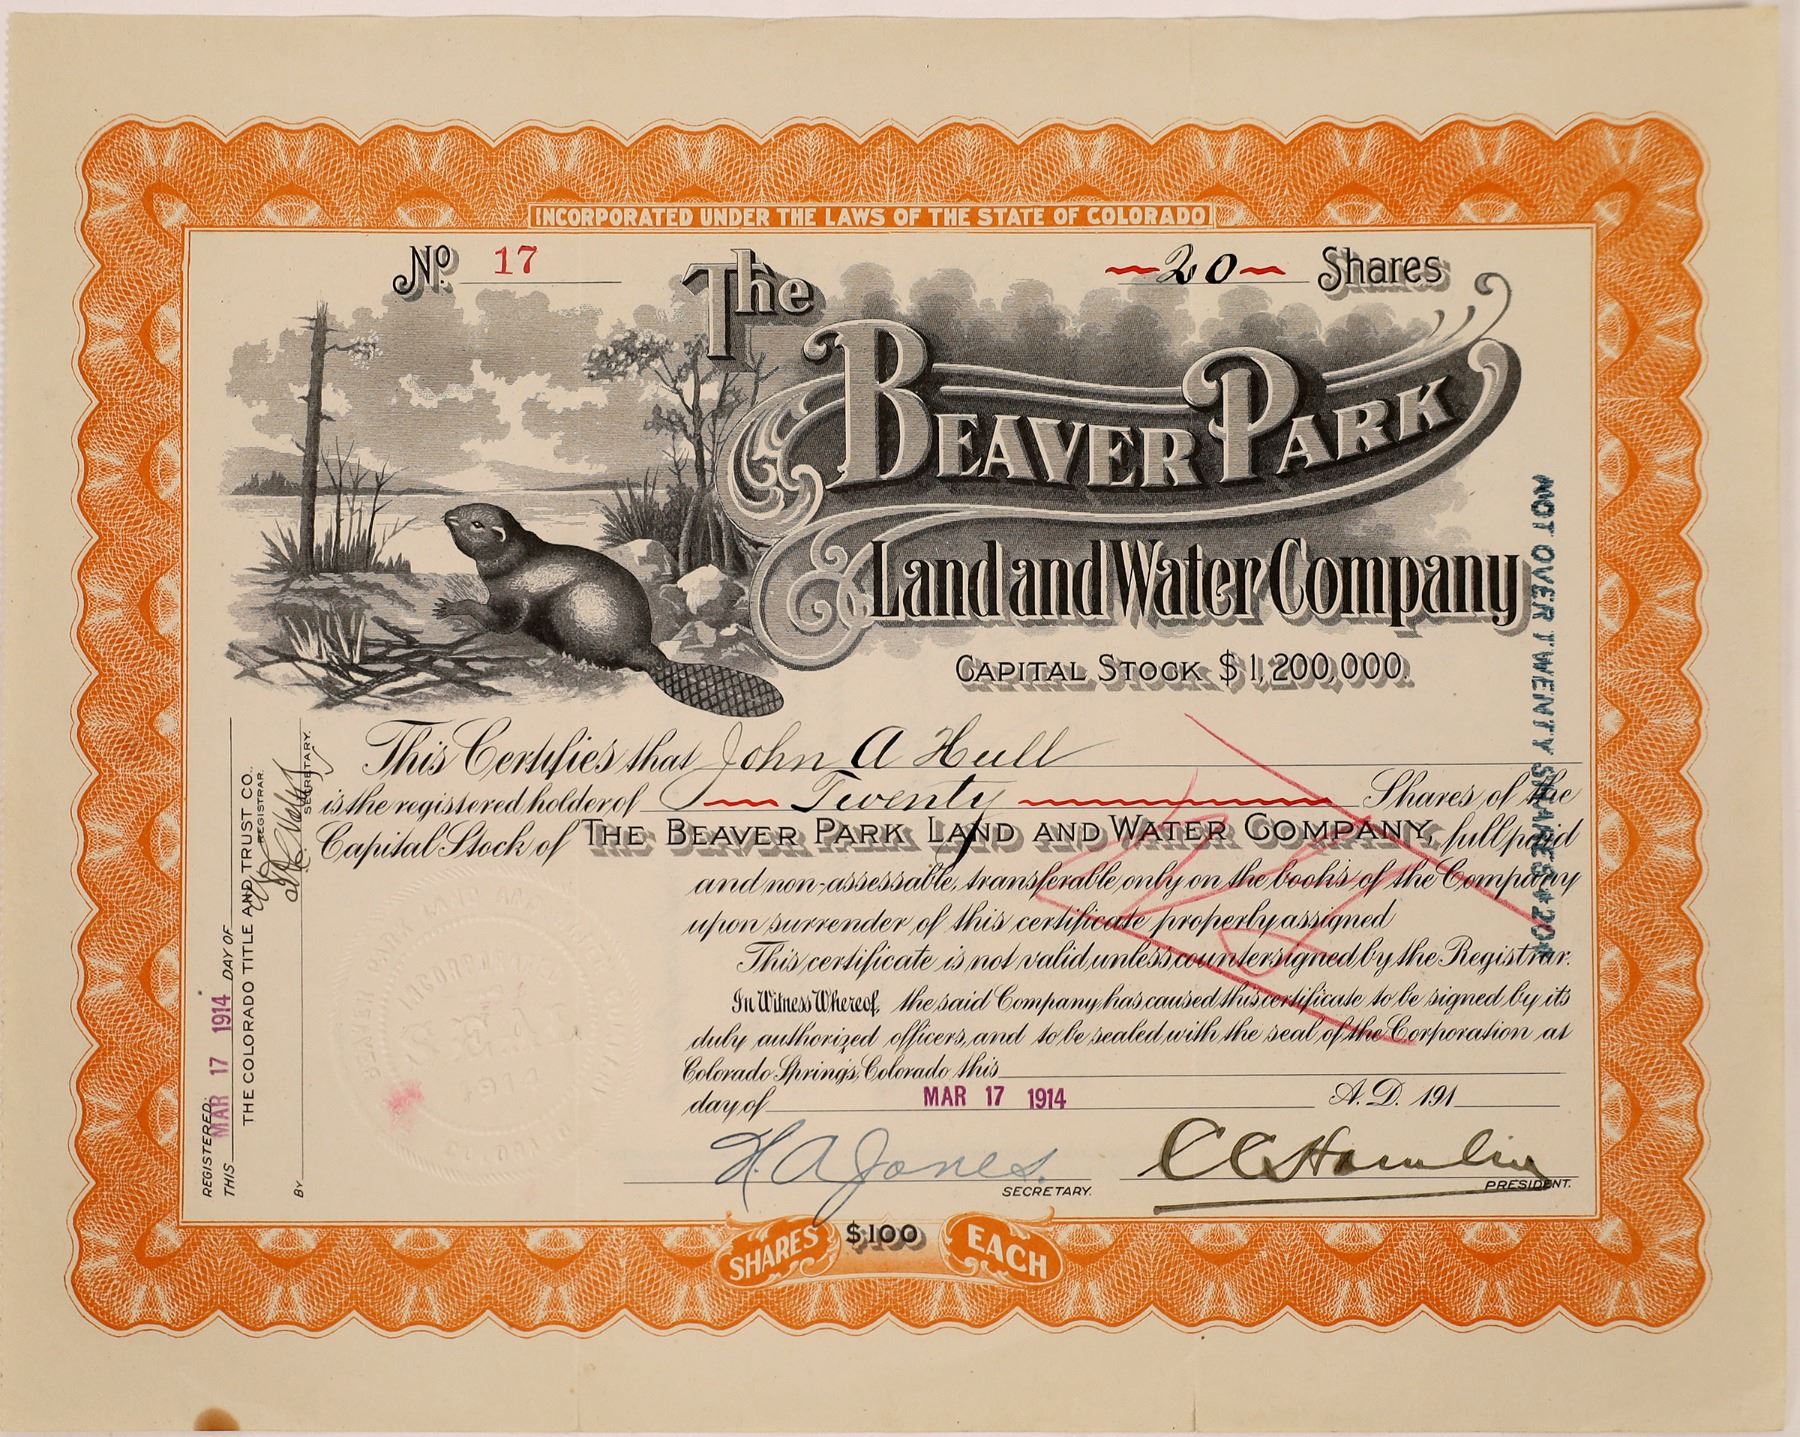 INCORPORATED UNDER THE LAWS OF THE STATE OF COLORADO
No. 17
20 Shares
The
BEAVER PARK
Land and Water Company
CAPITAL STOCK $1,200,000.
This Certifies that John A Hull
is the registered holder of Twenty Shares of the
Capital Stock of THE BEAVER PARK LAND AND WATER COMPANY, full paid
and non-assessable, transferable only on the books of the Company
upon surrender of this certificate properly assigned
This certificate is not valid unless countersigned by the Registrar.
In Witness Whereof, the said Company has caused this certificate to be signed by its
duly authorized officers, and to be sealed with the seal of the Corporation at
Colorado Springs, Colorado this
day of MAR 17 1914 A.D. 191
H. A. Jones. SECRETARY.
C C Hamlin PRESIDENT.
SHARES $100 EACH
REGISTERED:
THIS MAR 17 1914 DAY OF
THE COLORADO TITLE AND TRUST CO.
REGISTRAR.
BY SECRETARY.
NOT OVER TWENTY SHARES $20$